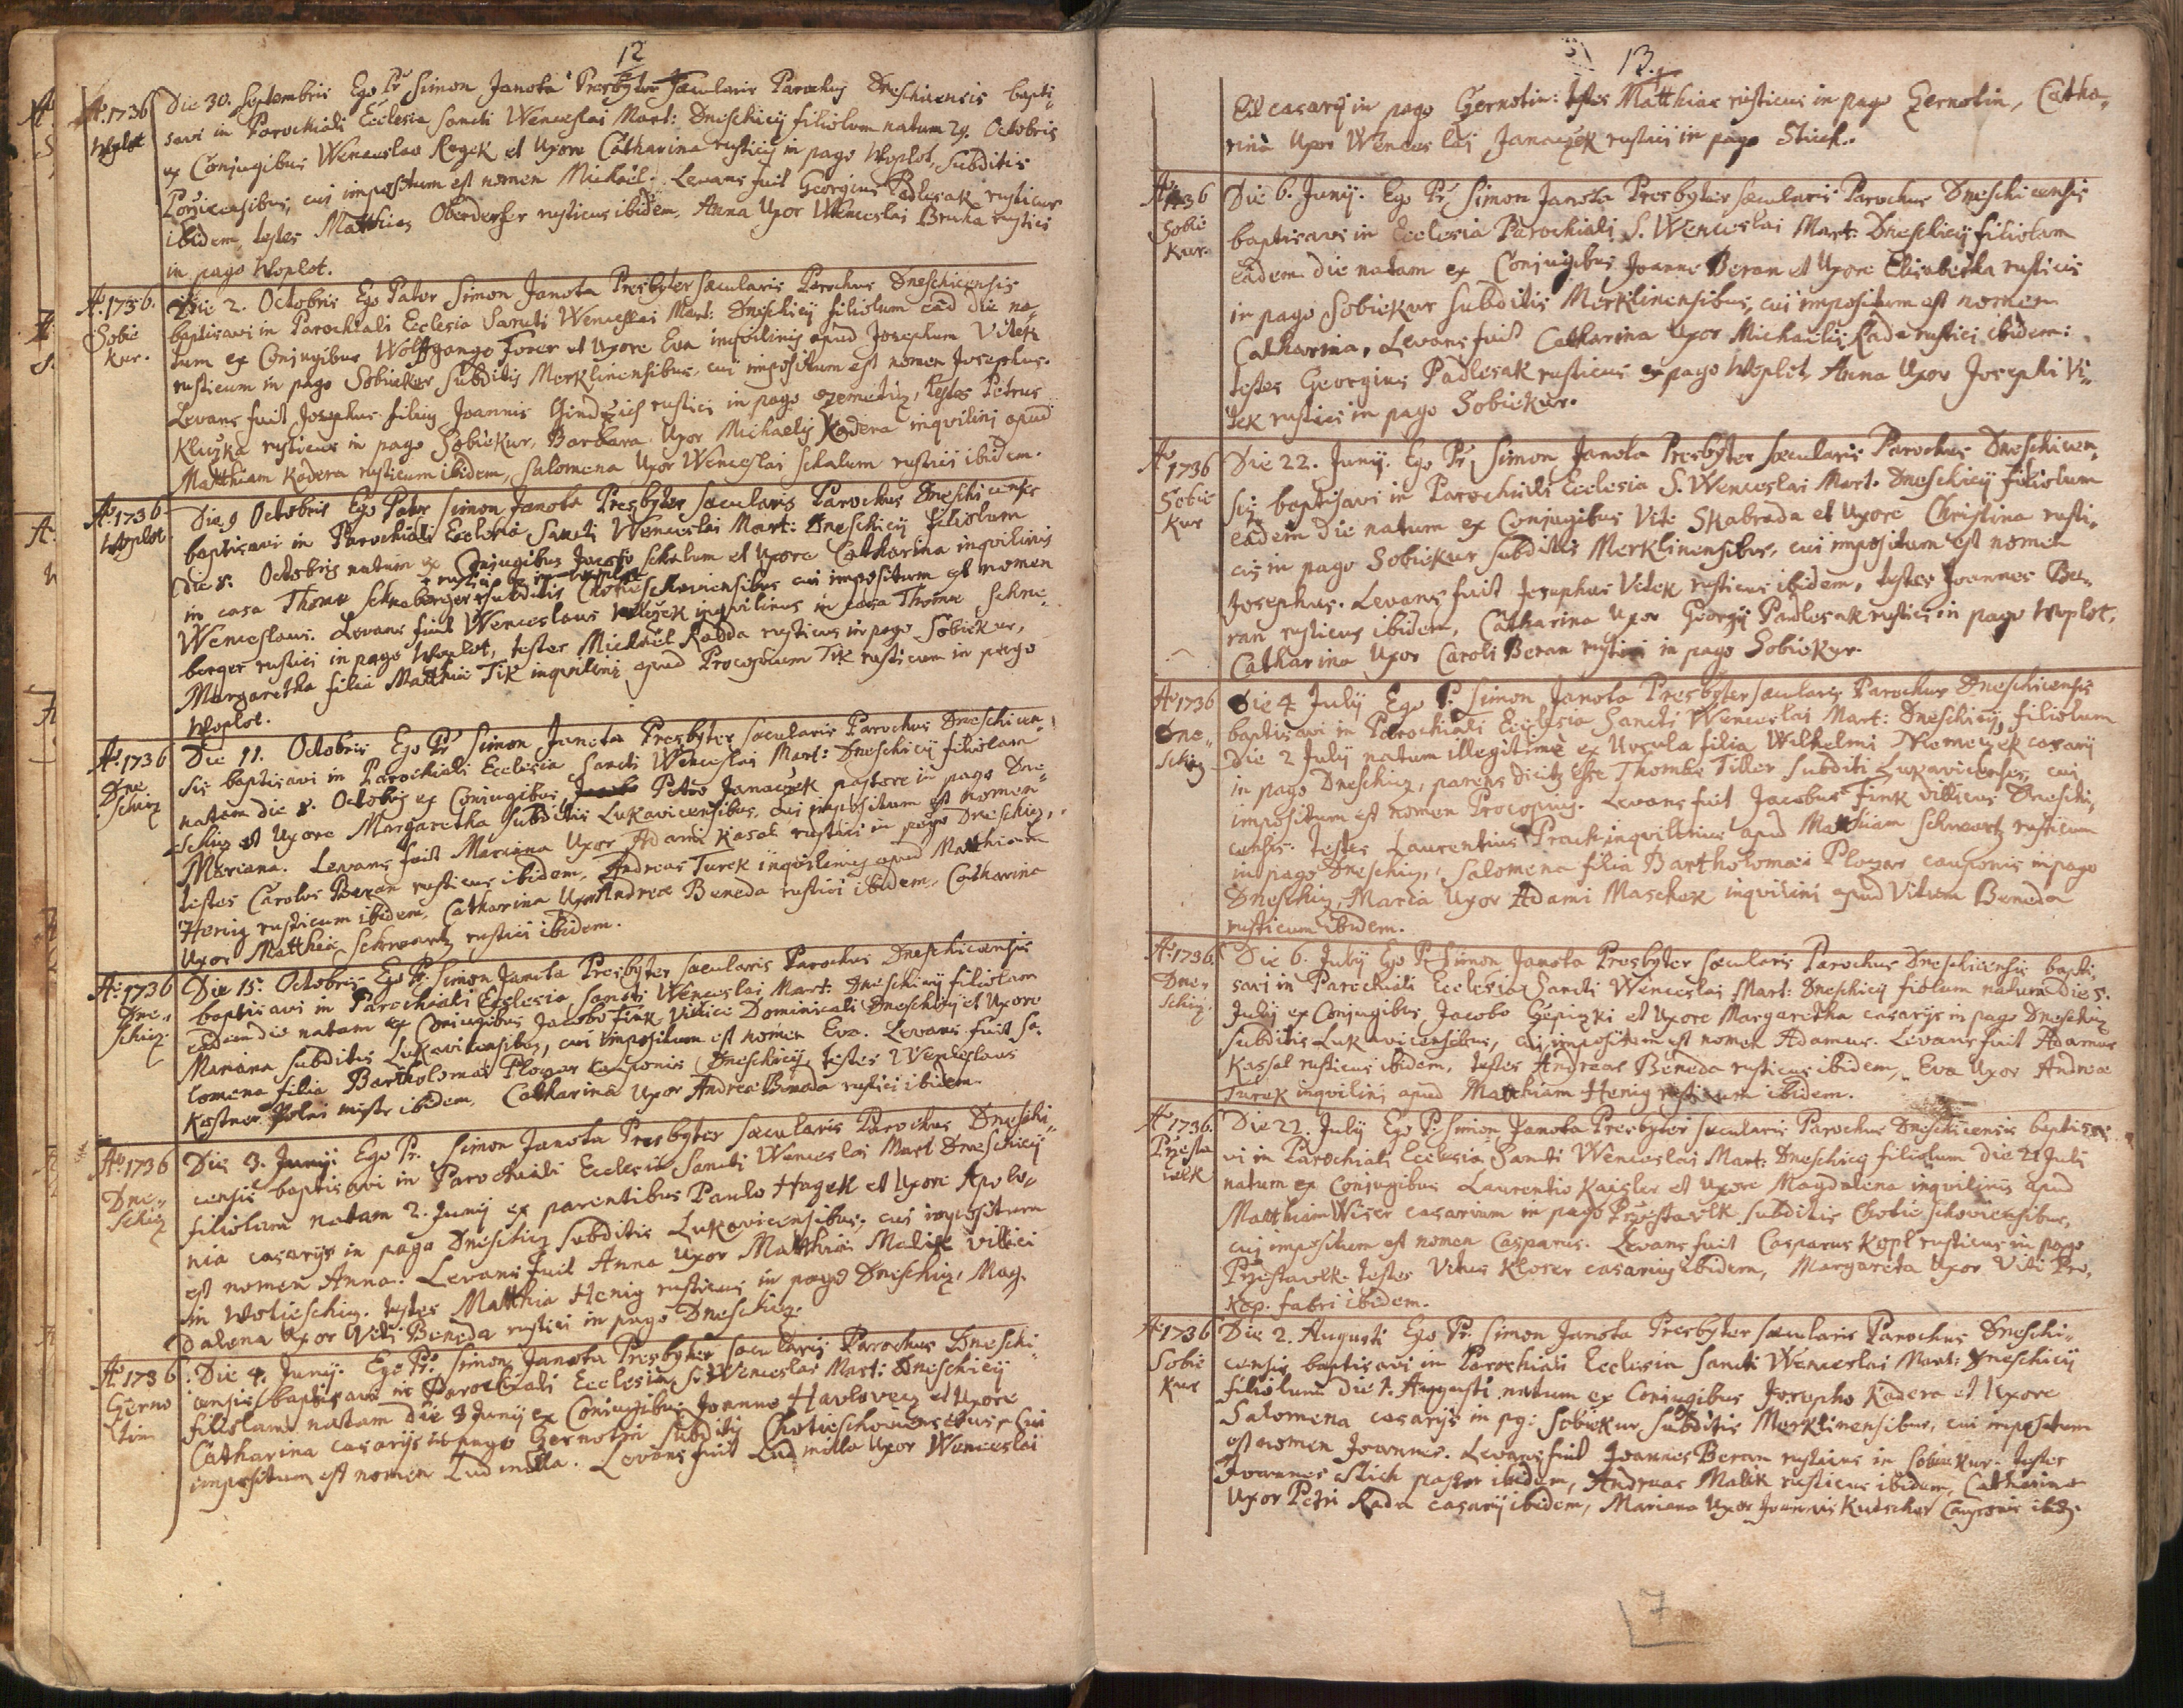 12
Aō 1736
Woplot
Die 30. Septembris Ego Pr Simon Janota Presbyter Sæcularis Parochus Dneschicensis bapti-
savi in Parochiali Ecclesia Sancti Wenceslai Mart: Dneschicij filiolum natum 29. Octobris
ex Conjugibus Wenceslao Rozek et Uxore Catharina rusticis in pago Woplot, subditis
cui impositum est nomen Michael. Levans fuit Georgius Padlesak rusticus
ibidem, testes Matthias rusticus ibidem, Anna Uxor Wenceslai Bruha rustici
in pago Woplot.
Aō 1736.
Sobie
kur.
Die 2. Octobris Ego Pater Simon Janota Presbyter sæcularis Parochus Dneschicensis
baptisavi in Parochiali Ecclesia Sancti Wenceslai Mart: Dneschicij filiolum eâd die na-
tum ex Conjugibus Wolffgango et Uxore Eva inquilinis apud Josephum Vitek
rusticum in pago Sobiekur subditis Merklinensibus, cui impositum est nomen Josephus.
Levans fuit Josephus filius Joannis rustici in pago testes Petrus
Kliczka rusticus in pago Sobiekur, Barbara Uxor Michaelis Kadera inquilini apud
Matthiam Kadera rusticum ibidem, Salomena Uxor Wenceslai Schalum rustici ibidem.
Aō 1736
Woplot
Die 9 Octobris Ego Pater Simon Janota Presbyter sæcularis Parochus Dneschicensis
baptisavi in Parochiali Ecclesia Sancti Wenceslai Mart: Dneschicij filiolum
Die 8. Octobris natum ex Conjugibus Jacobo Schalum et Uxore Catharina inquilinis
in casa Thomæ Schneberger subditis Chotieschoviensibus cui impositum est nomen
Wenceslaus. Levans fuit Wenceslaus inquilinus in casa Thomæ Schne-
berger rustici in pago Woplot, testes Michael Radda rusticus in pago Sobiekur,
Margaretha filia Matthiæ Tik inquilini apud Procopium Tik rusticum in pago
Woplot.
Aō 1736
Dne-
schiz
Die 11. Octobris Ego Pr Simon Janota Presbyter sæcularis Parochus Dneschicen-
sis baptisavi in Parochiali Ecclesia Sancti Wenceslai Mart: Dneschicij filiolam
natam die 8. Octobris ex Conjugibus Petro Janaczek pastore in pago Dne-
schiz et Uxore Margaretha subditis Lukavicensibus, cui impositum est nomen
Mariana. Levans fuit Mariana Uxor Adami Kasal rustici in pago Dneschiz,
testes Carolus Beran rusticus ibidem, Andreas Turek inquilinus apud Matthiam
Henig rusticum ibidem, Catharina Uxor Andreæ Beneda rustici ibidem, Catharina
Uxor Matthiæ Schwartz rustici ibidem.
Aō 1736
Dne-
schiz
Die 15. Octobris Ego Pr. Simon Janota Presbyter sæcularis Parochus Dneschicensis
baptisavi in Parochiali Ecclesia Sancti Wenceslai Mart: Dneschicij filiolam
eadem die natam ex Conjugibus Jacobo Fink Villico Dominicali Dneschicij et Uxore
Mariana subditis Lukavicensibus, cui impositum est nomen Eva. Levans fuit Sa-
lomena filia Bartholomæi Plozar cauponis Dneschicij, testes Wenceslaus
Kestner ibidem, Catharina Uxor Andreæ Beneda rustici ibidem.
Aō 1736
Dne-
schiz
Die 3. Junij: Ego Pr. Simon Janota Presbyter sæcularis Parochus Dneschi-
censis baptisavi in Parochiali Ecclesia Sancti Wenceslai Mart Dneschicij
filiolam natam 2. Junij ex parentibus Paulo Hazek et Uxore Apolo-
nia casarijs in pago Dneschiz subditis Lukavicensibus, cui impositum
est nomen Anna. Levans fuit Anna Uxor Matthiæ villici
in Wotieschiz. testes Matthia Henig rusticus in pago Dneschiz, Mag-
dalena Uxor Viti Beneda rustici in pago Dneschiz.
Aō 1736
Gerno
tin
Die 4. Junij. Ego Pr. Simon Janota Presbyter sæcularis Parochus Dneschi-
censis baptisavi in Parochiali Ecclesia S. Wenceslai Mart: Dneschicij
filiolam natam die 3 Junij ex Conjugibus Joanne Havlovez et Uxore
Catharina casarijs in pago Gernotin subditis Chotieschoviensibus, cui
impositum est nomen Ludmilla. Levans fuit Ludmilla Uxor Wenceslai
13.
casarij in pago Gernotin: testes Matthias rusticus in pago Gernotin, Catha-
rina Uxor Wenceslai Janaczek rustici in pago Stich.
Aō 1736
Sobie
kur.
Die 6. Junij. Ego Pr. Simon Janota Presbyter sæcularis Parochus Dneschicensis
baptisavi in Ecclesia Parochiali S. Wenceslai Mart: Dneschicij filiolam
eâdem die natam ex Conjugibus Joanne Beran et Uxore Elisabetha rusticis
in pago Sobiekur subditis Merklinensibus, cui impositum est nomen
Catharina, Levans fuit Catharina Uxor Michaelis Rada rustici ibidem:
testes Georgius Padlesak rusticus ex pago Woplot, Anna Uxor Josephi Vi-
tek rustici in pago Sobiekur.
Aō 1736
Sobie
kur
Die 22. Junij. Ego Pr. Simon Janota Presbyter sæcularis Parochus Dneschicen-
sis baptisavi in Parochiali Ecclesia S. Wenceslai Mart. Dneschicij filiolum
eâdem die natum ex Conjugibus Vito Skabrada et Uxore Christina rusti-
cis in pago Sobiekur subditis Merklinensibus, cui impositum est nomen
Josephus. Levans fuit Josephus Vitek rusticus ibidem, testes Joannes Be-
ran rusticus ibidem, Catharina Uxor Georgij Padlesak rustici in pago Woplot,
Catharina Uxor Caroli Beran rustici in pago Sobiekur.
Aō 1736
Dne-
schiz
Die 4 July Ego P. Simon Janota Presbyter sæcularis Parochus Dneschicensis
baptisavi in Parochiali Ecclesia Sancti Wenceslai Mart: Dneschicij filiolum
Die 2 July natum illegitimè ex Ursula filia Wilhelmi casarij
in pago Dneschiz, parens dicitr esse Thomas Tiller subditi Lukavicenses, cui
impositum est nomen Procopius. Levans fuit Jacobus Fink villicus Dneschi-
censis. testes Laurentius Prack inquilinus apud Matthiam Schwartz rusticum
in pago Dneschiz, Salomena filia Bartholomæi Plozar cauponis in pago
Dneschiz, Maria Uxor Adami Maschek inquilini apud Vitum Beneda
rusticum ibidem.
Aō 1736.
Dne-
schiz.
Die 6. July Ego P. Simon Janota Presbyter sæcularis Parochus Dneschicensis bapti-
savi in Parochiali Ecclesia Sancti Wenceslai Mart: Dneschicij fiolum natum Die 5.
July ex Conjugibus Jacobo et Uxore Margaretha casarijs in pago Dneschiz
subditis Lukavicensibus, cui impositum est nomen Adamus. Levans fuit Adamus
Kassal rusticus ibidem, testes Andreas Beneda rusticus ibidem, Eva Uxor Andreæ
Turek inquilini apud Matthiam Henig rusticum ibidem.
Aō 1736.
Przesta
wlk
Die 22. July Ego P. Simon Janota Presbyter sæcularis Parochus Dneschicensis baptisa-
vi in Parochiali Ecclesia Sancti Wenceslai Mart: Dneschicij filiolum die 21 Juli
natum ex Conjugibus Laurentio Kaisler et Uxore Magdalena inquilinis apud
Matthiam Wiser casarium in pago Przestawlk subditis Chotieschoviensibus,
cui impositum est nomen Casparus. Levans fuit Casparus Kopt rusticus in pago
Przestawlk. testes Vitus Kloser casarius ibidem, Margareta Uxor Viti Pro-
kop. fabri ibidem.
Aō 1736
Sobie
kur
Die 2. Augusti Ego Pr. Simon Janota Presbyter sæcularis Parochus Dneschi-
censis baptisavi in Parochiali Ecclesia Sancti Wenceslai Mart: Dneschicij
filiolum die 1. Augusti natum ex Conjugibus Josepho Kadera et Uxore
Salomena casarijs in pg: Sobiekur subditis Merklinensibus, cui impositum
est nomen Joannes. Levans fuit Joannes Beran rusticus in Sobiekur. testes
Joannes Stich pastor ibidem, Andreas Malik rusticus ibidem, Catharina
Uxor Petri Rada casarij ibidem, Mariana Uxor Joannis Kutscher Cauponis ibid.
7